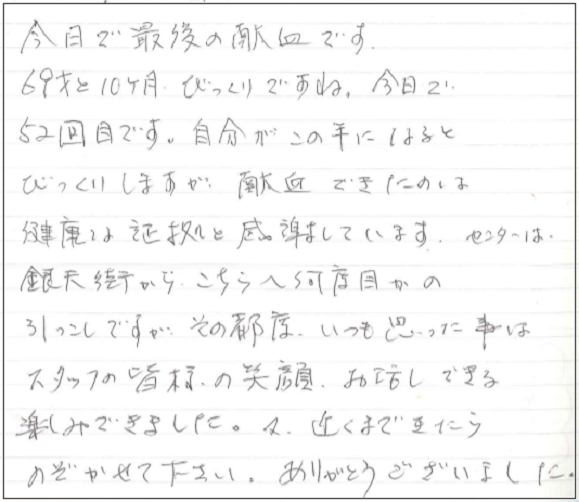 今日で最後の献血です.
69才と10ヶ月.びっくりですね。今日で.
52回目です。自分がこの年になると
びっくりしますが.献血できたのは
健康な証拠と感謝しています.センターは.
銀天街から.こちらへ何度目かの
引っこしですが.その都度.いつも思った事は
スタッフの皆様.の笑顔.お話しできる
楽しみできました。又.近くまで来たら
のぞかせて下さい。ありがとうございました。